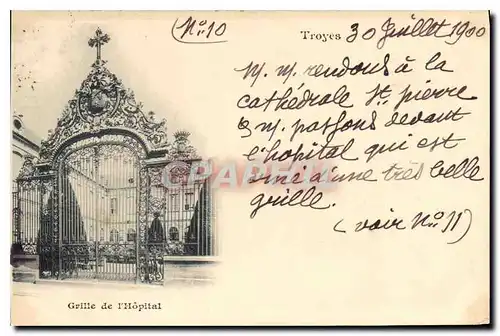 (N° 10
Troyes 30 Juillet 1900
M. M. rendons à la
cathédrale St. pierre
M. passons devant
l'hôpital qui est
orné d'une très belle
grille.
(voir N° 11)
CPARAMA
Grille de l'Hôpital